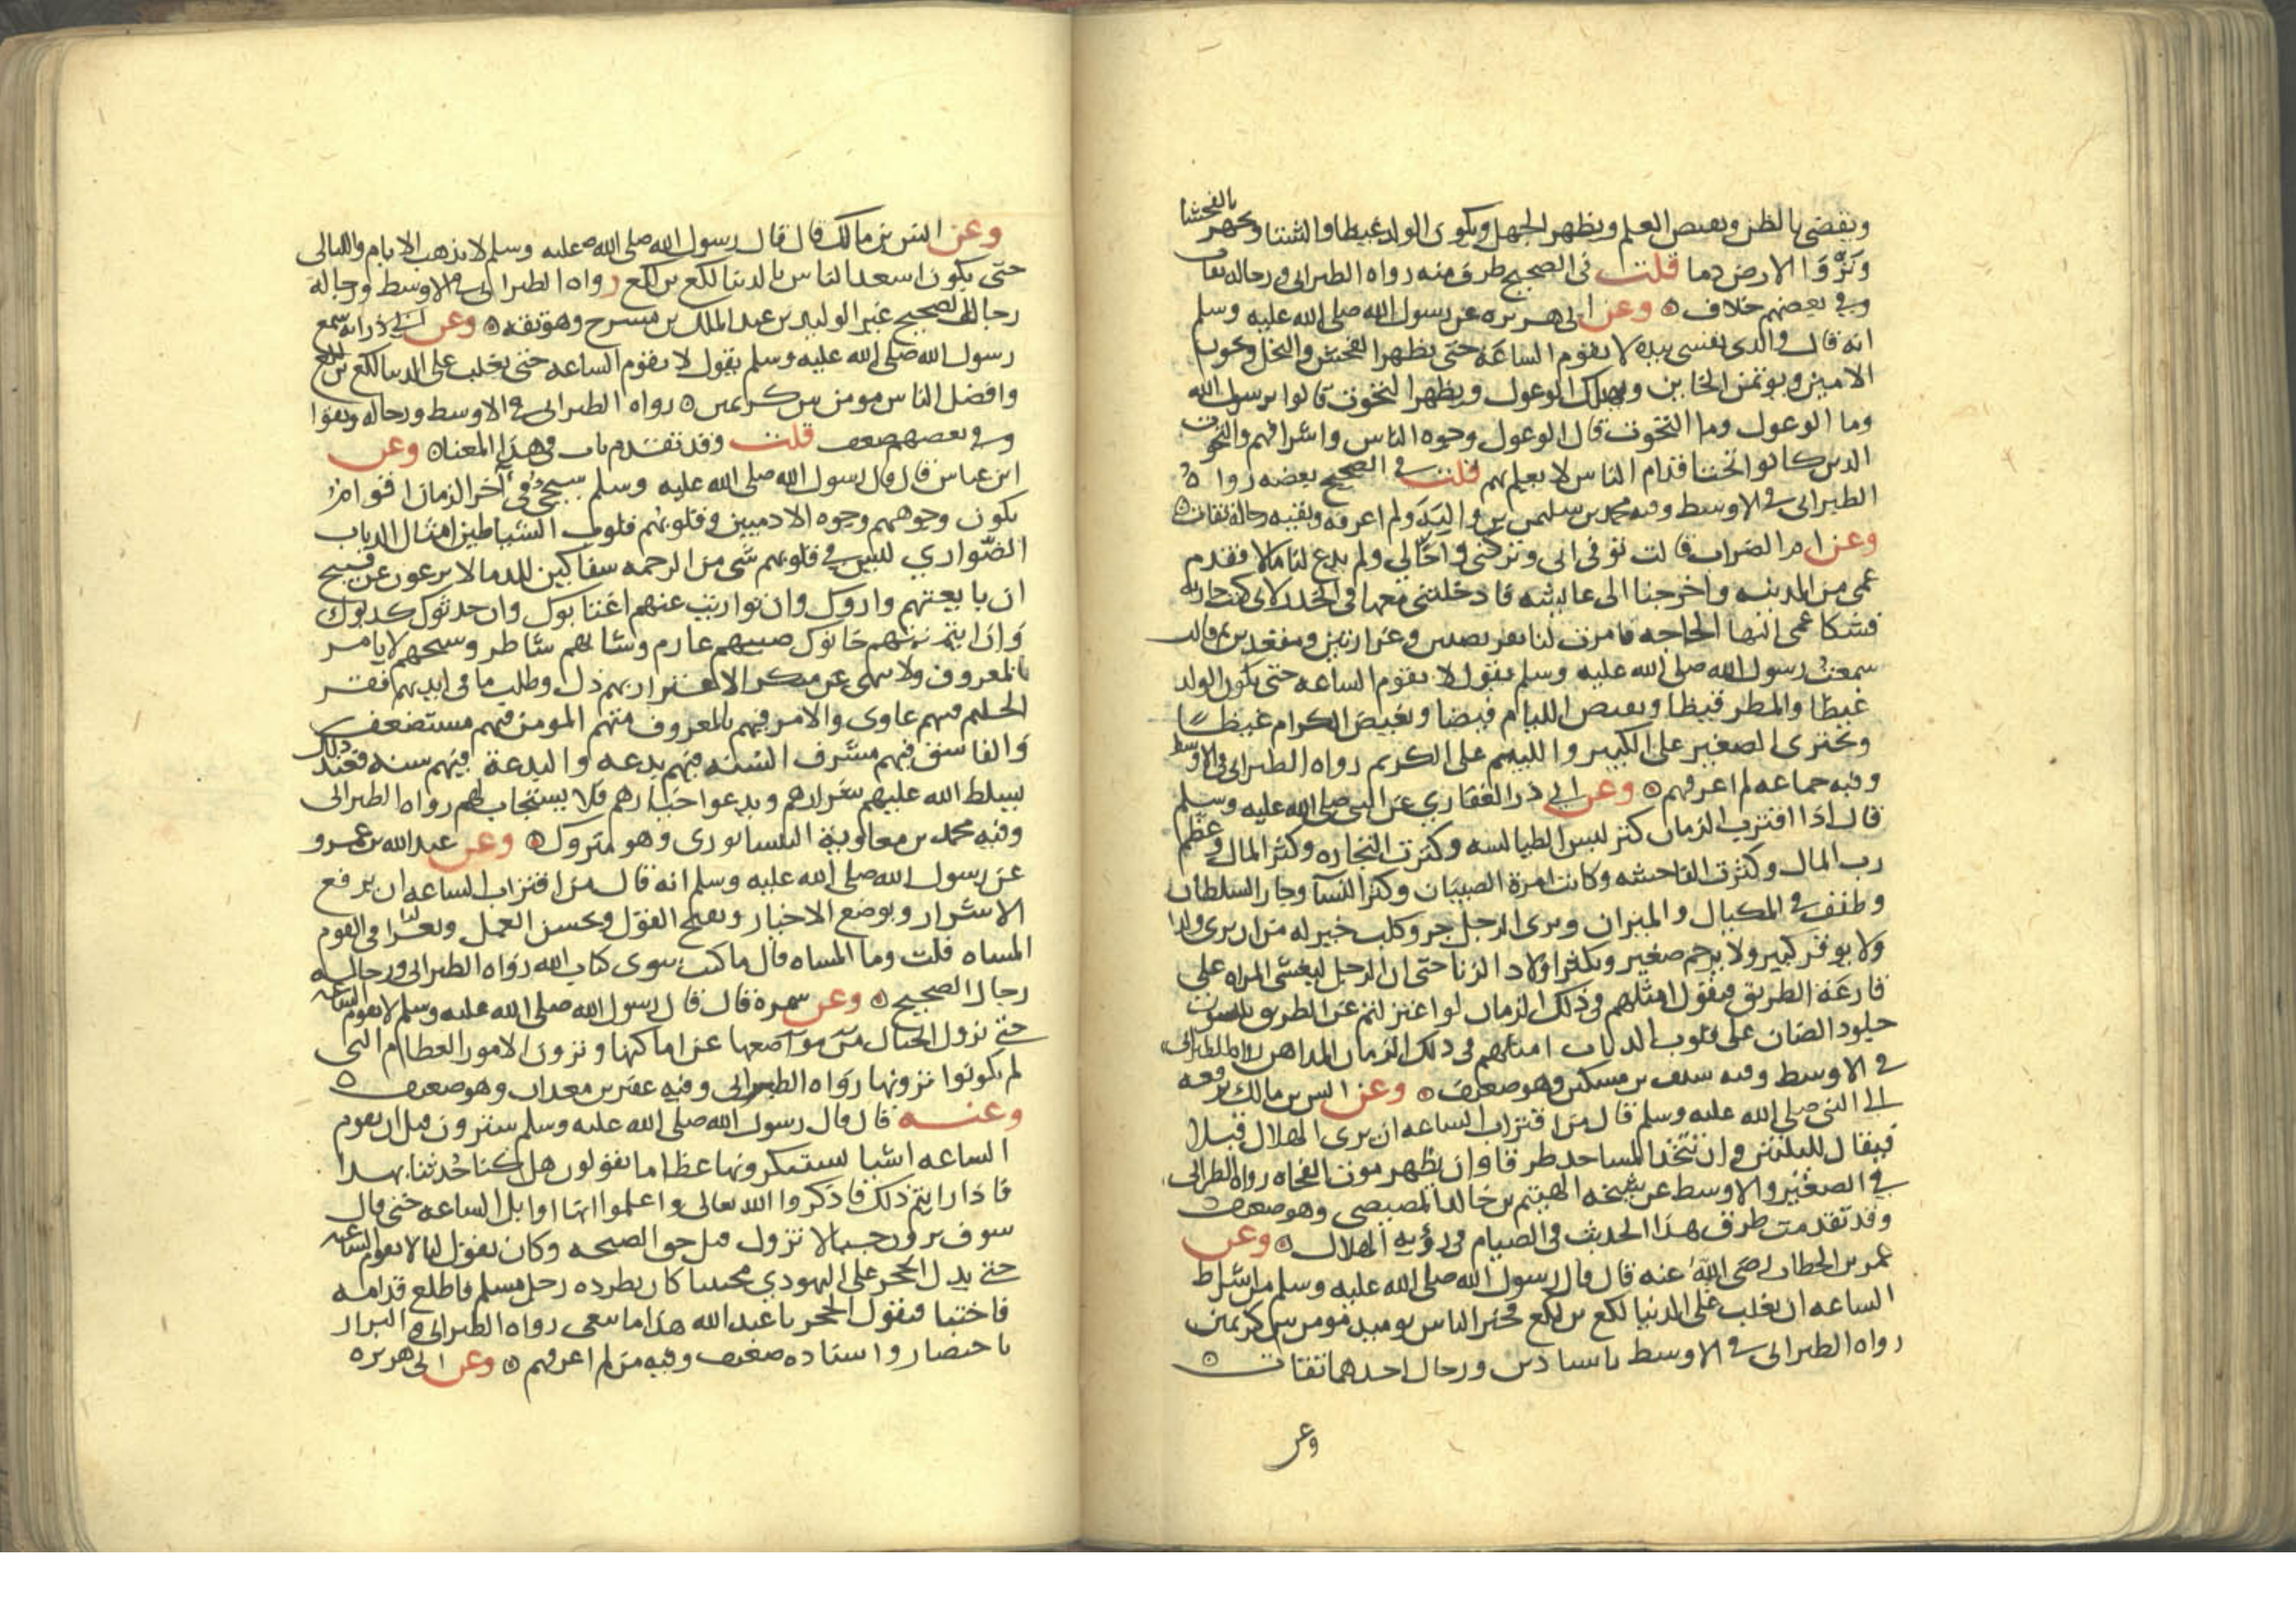 ويقضى بالظن ويقبض العلم ويظهر الجهل ويكون الولد غيظا والشتا ويجهر بالفحشا
وتزوا الارض دما قلت فى الصحيح طرف منه رواه الطبرانى ورجاله ثقات
وفى بعضهم خلاف وعن ابى هريره عن رسول الله صلى الله عليه وسلم
انه قال والذى نفسى بيده لا تقوم الساعة حتى يظهر الفحش والبخل ويخون
الامين ويوتمن الخاين ويهلك الوعول ويظهر التحوت قالوا يرسول الله
وما الوعول وما التحوت قال الوعول وجوه الناس واشرافهم والتحوت
الدين كانوا تحت اقدام الناس لا يعلم بهم قلت فى الصحيح بعضه رواه
الطبرانى فى الاوسط وفيه محمد بن سليمن بن والبة ولم اعرفه وبقيه رجاله ثقات
وعن ام الضراب قالت توفى ابى وتركنى واخا لى ولم يدع لنا مالا فقدم
عمى من المدينه واخرجنا الى عايشه فادخلتنى معها فى الخدر لانى كنت جاريه
فشكا عمى اليها الحاجه فامرت لنا بفريضتين وغرارتين ومقعدين ثم قالت
سمعت رسول الله صلى الله عليه وسلم يقول لا تقوم الساعه حتى يكون الولد
غيظا والمطر قيظا ويفيض الليام فيضا ويغيض الكرام غيظا
ويجترى الصغير على الكبير والليم على الكريم رواه الطبرانى فى الاوسط
وفيه جماعه لم اعرفهم وعن ابى ذر الغفارى عن النبى صلى الله عليه وسلم
قال اذا اقترب الزمان كثر لبس الطيالسه وكثرت التجاره وكثر المال وعظم
رب المال وكثرت الفاحشه وكانت امرة الصبيان وكثر النسا وجار السلطان
وطفف فى المكيال والميزان ويربى الرجل جرو كلب خير له من ان يربى ولدا
ولا يوقر كبير ولا يرحم صغير ويكثر اولاد الزنا حتى ان الرجل ليغشى المراه على
قارعة الطريق فيقول امثلهم فى ذلك الزمان لو اعتزلتم عن الطريق يلبسون
جلود الضان على قلوب الدياب امثلهم فى ذلك الزمان المداهن رواه الطبرانى
فى الاوسط وفيه سيف بن مسكين وهو ضعيف وعن انس بن مالك رفعه
الى النبى صلى الله عليه وسلم قال من اقتراب الساعه ان يرى الهلال قبلا
فيقال لليلتين وان تتخذ المساجد طرقا وان يظهر موت الفجاه رواه الطبرانى
فى الصغير والاوسط عن شيخه الهيتم بن خالد المصيصى وهو ضعيف
وقد تقدمت طرق هذا الحديث فى الصيام فى رؤية الهلال وعن
عمر بن الخطاب رضى الله عنه قال قال رسول الله صلى الله عليه وسلم من اشراط
الساعه ان يغلب على الدنيا لكع بن لكع فخير الناس يوميد مومن بين كريمين
رواه الطبرانى فى الاوسط باسنادين ورجال احدهما ثقات
وعن
وعن انس بن مالك قال قال رسول الله صلى الله عليه وسلم لا تذهب الايام والليالى
حتى يكون اسعد الناس بالدنيا لكع بن لكع رواه الطبرانى فى الاوسط ورجاله
رجال الصحيح غير الوليد بن عبد الملك بن مسرح وهو ثقه وعن ابى ذر انه سمع
رسول الله صلى الله عليه وسلم يقول لا تقوم الساعه حتى يغلب على الدنيا لكع بن لكع
وافضل الناس مومن بين كريمين رواه الطبرانى فى الاوسط ورجاله وثقوا
وفى بعضهم ضعف قلت وقد تقدم باب فى هذا المعنا وعن
ابن عباس قال قال رسول الله صلى الله عليه وسلم سيجى فى آخر الزمان اقوام
يكون وجوههم وجوه الادميين وقلوبهم قلوب الشياطين امثال الدياب
الضوارى لليس فى قلوبهم شى من الرحمه سفاكين للدما لا يرعون عن قبيح
ان بايعتهم واروك وان تواريت عنهم اغتابوك وان حدثوك كدبوك
وان ايتمنتهم خانوك صبيهم عارم وشابهم شاطر وشيخهم لا يامر
بالمعروف ولا ينهى عن منكر الاعتزاز بهم ذل وطلب ما فى ايديهم فقر
الحليم فيهم غاوى والامر فيهم بالمعروف متهم المومن فيهم مستضعف
والفاسق فيهم مشرف السنه فيهم بدعه والبدعة فيهم سنه فعند ذلك
يسلط الله عليهم شرارهم ويدعوا خيارهم فلا يستجاب لهم رواه الطبرانى
وفيه محمد بن معاوية النيسابورى وهو متروك وعن عبد الله بن عمرو
عن رسول الله صلى الله عليه وسلم انه قال من اقتراب الساعه ان يرفع
الاشرار ويوضع الاخيار ويقبح القول ويحسن العمل ويقرا فى القوم
المساه قلت وما المساه قال ما كتب سوى كتاب الله رواه الطبرانى ورجاله
رجال الصحيح وعن سمرة قال قال رسول الله صلى الله عليه وسلم لا تقوم الساعه
حتى تزول الجبال من مواضعها عن اماكنها وترون الامور العظام التى
لم تكونوا ترونها رواه الطبرانى وفيه عفير بن معدان وهو ضعيف
وعنه قال قال رسول الله صلى الله عليه وسلم سترون قبل ان تقوم
الساعه اشيا تستنكرونها عظاما تقولون هل كنا حدثنا بهذا
فاذا رايتم ذلك فاذكروا الله تعالى واعلموا انها اوايل الساعه حتى قال
سوف ترون جبالا تزول قبل حق الصيحه وكان يقول لنا لا تقوم الساعه
حتى يدل الحجر على اليهودى مختبيا كان يطرده رجل مسلم فاطلع قدامه
فاختبا فيقول الحجر يا عبد الله هذا ما تبتغى رواه الطبرانى والبزار
باختصار واسناده ضعيف وفيه من لم اعرفهم وعن ابى هريره